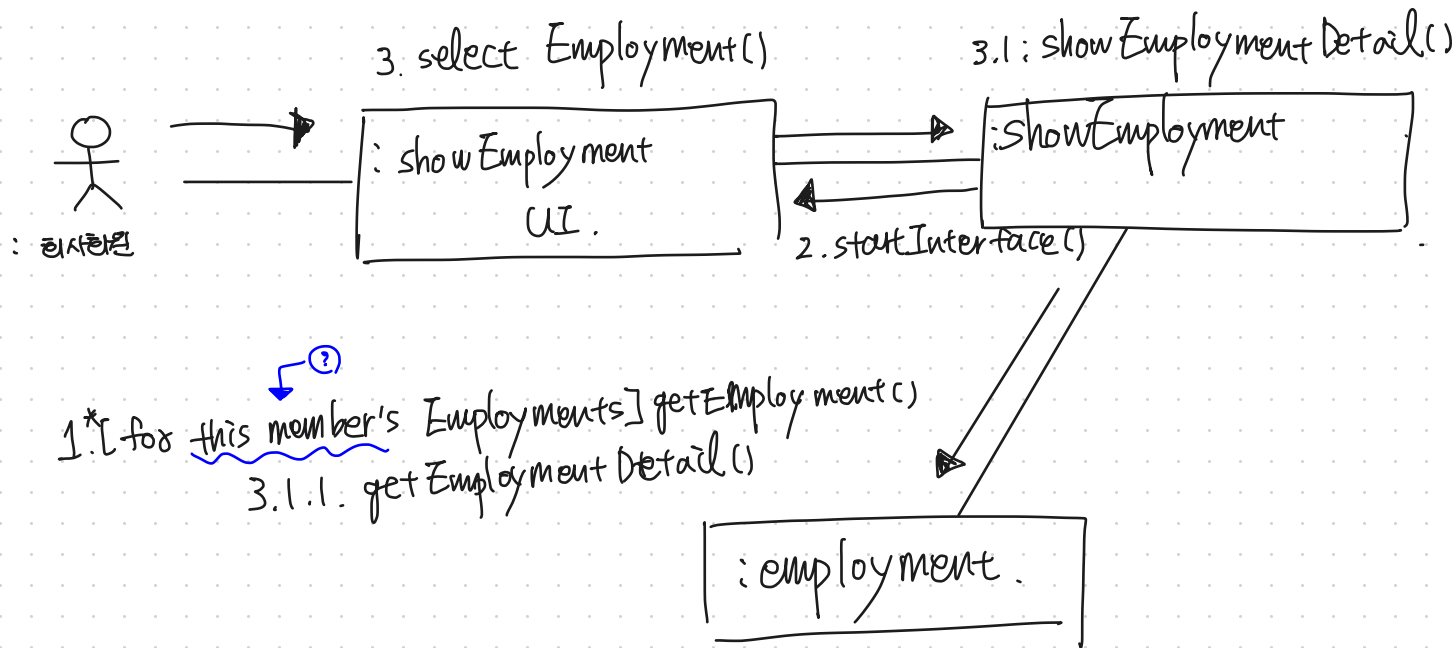 3. select Employment()
3.1 : showEmploymentDetail()
: showEmployment
UI.
:ShowEmployment
: 회사회원
2. startInterface()
?
1.*[for this member's Employments] getEmployment()
3.1.1. getEmploymentDetail()
:employment.